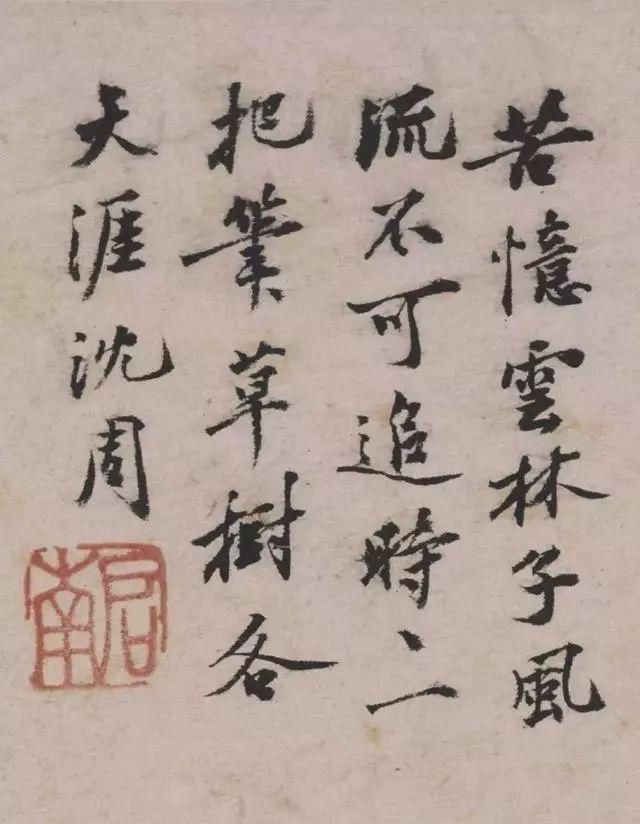 苦憶雲林子風
流不可追時〻
把筆草樹各
天涯沈周
启南